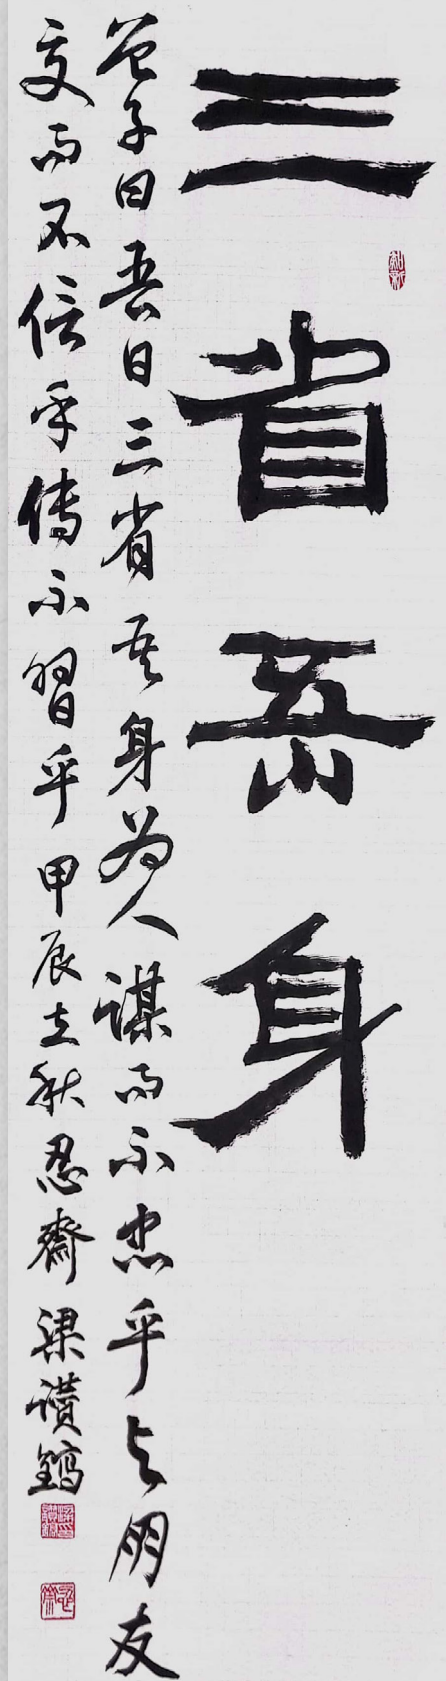 三省吾身
曾子曰吾日三省吾身为人谋而不忠乎与朋友
交而不信乎传不習乎甲辰立秋忍齋梁讚